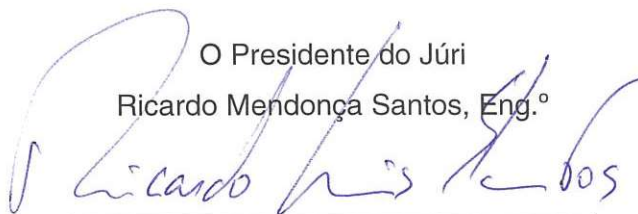 O Presidente do Júri
Ricardo Mendonça Santos, Eng.º
Ricardo Luis Santos